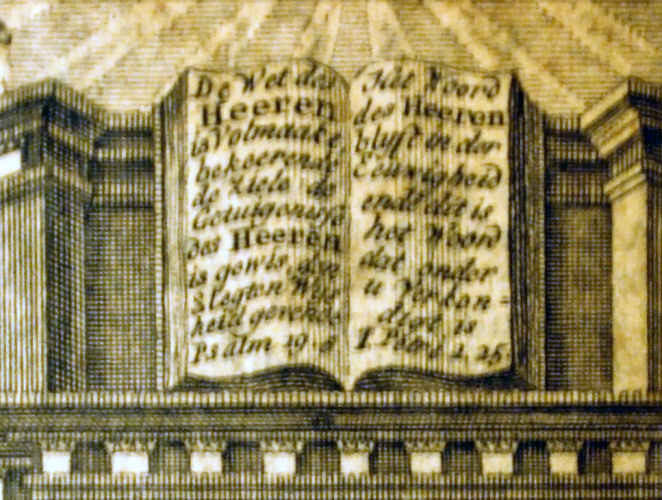 De Wet des
Heeren
is Volmaakt
bekeerende
de Ziele de
Getuigenisse
des Heeren
is gewis, den
Slegten Wys
heid gevende
Psalm 19. 8
Hat Woord
des Heeren
blyft in der
Eeuwigheid
ende dit is
het Woord
dat onder
u Verkon =
digt is
I Petri 1. 25